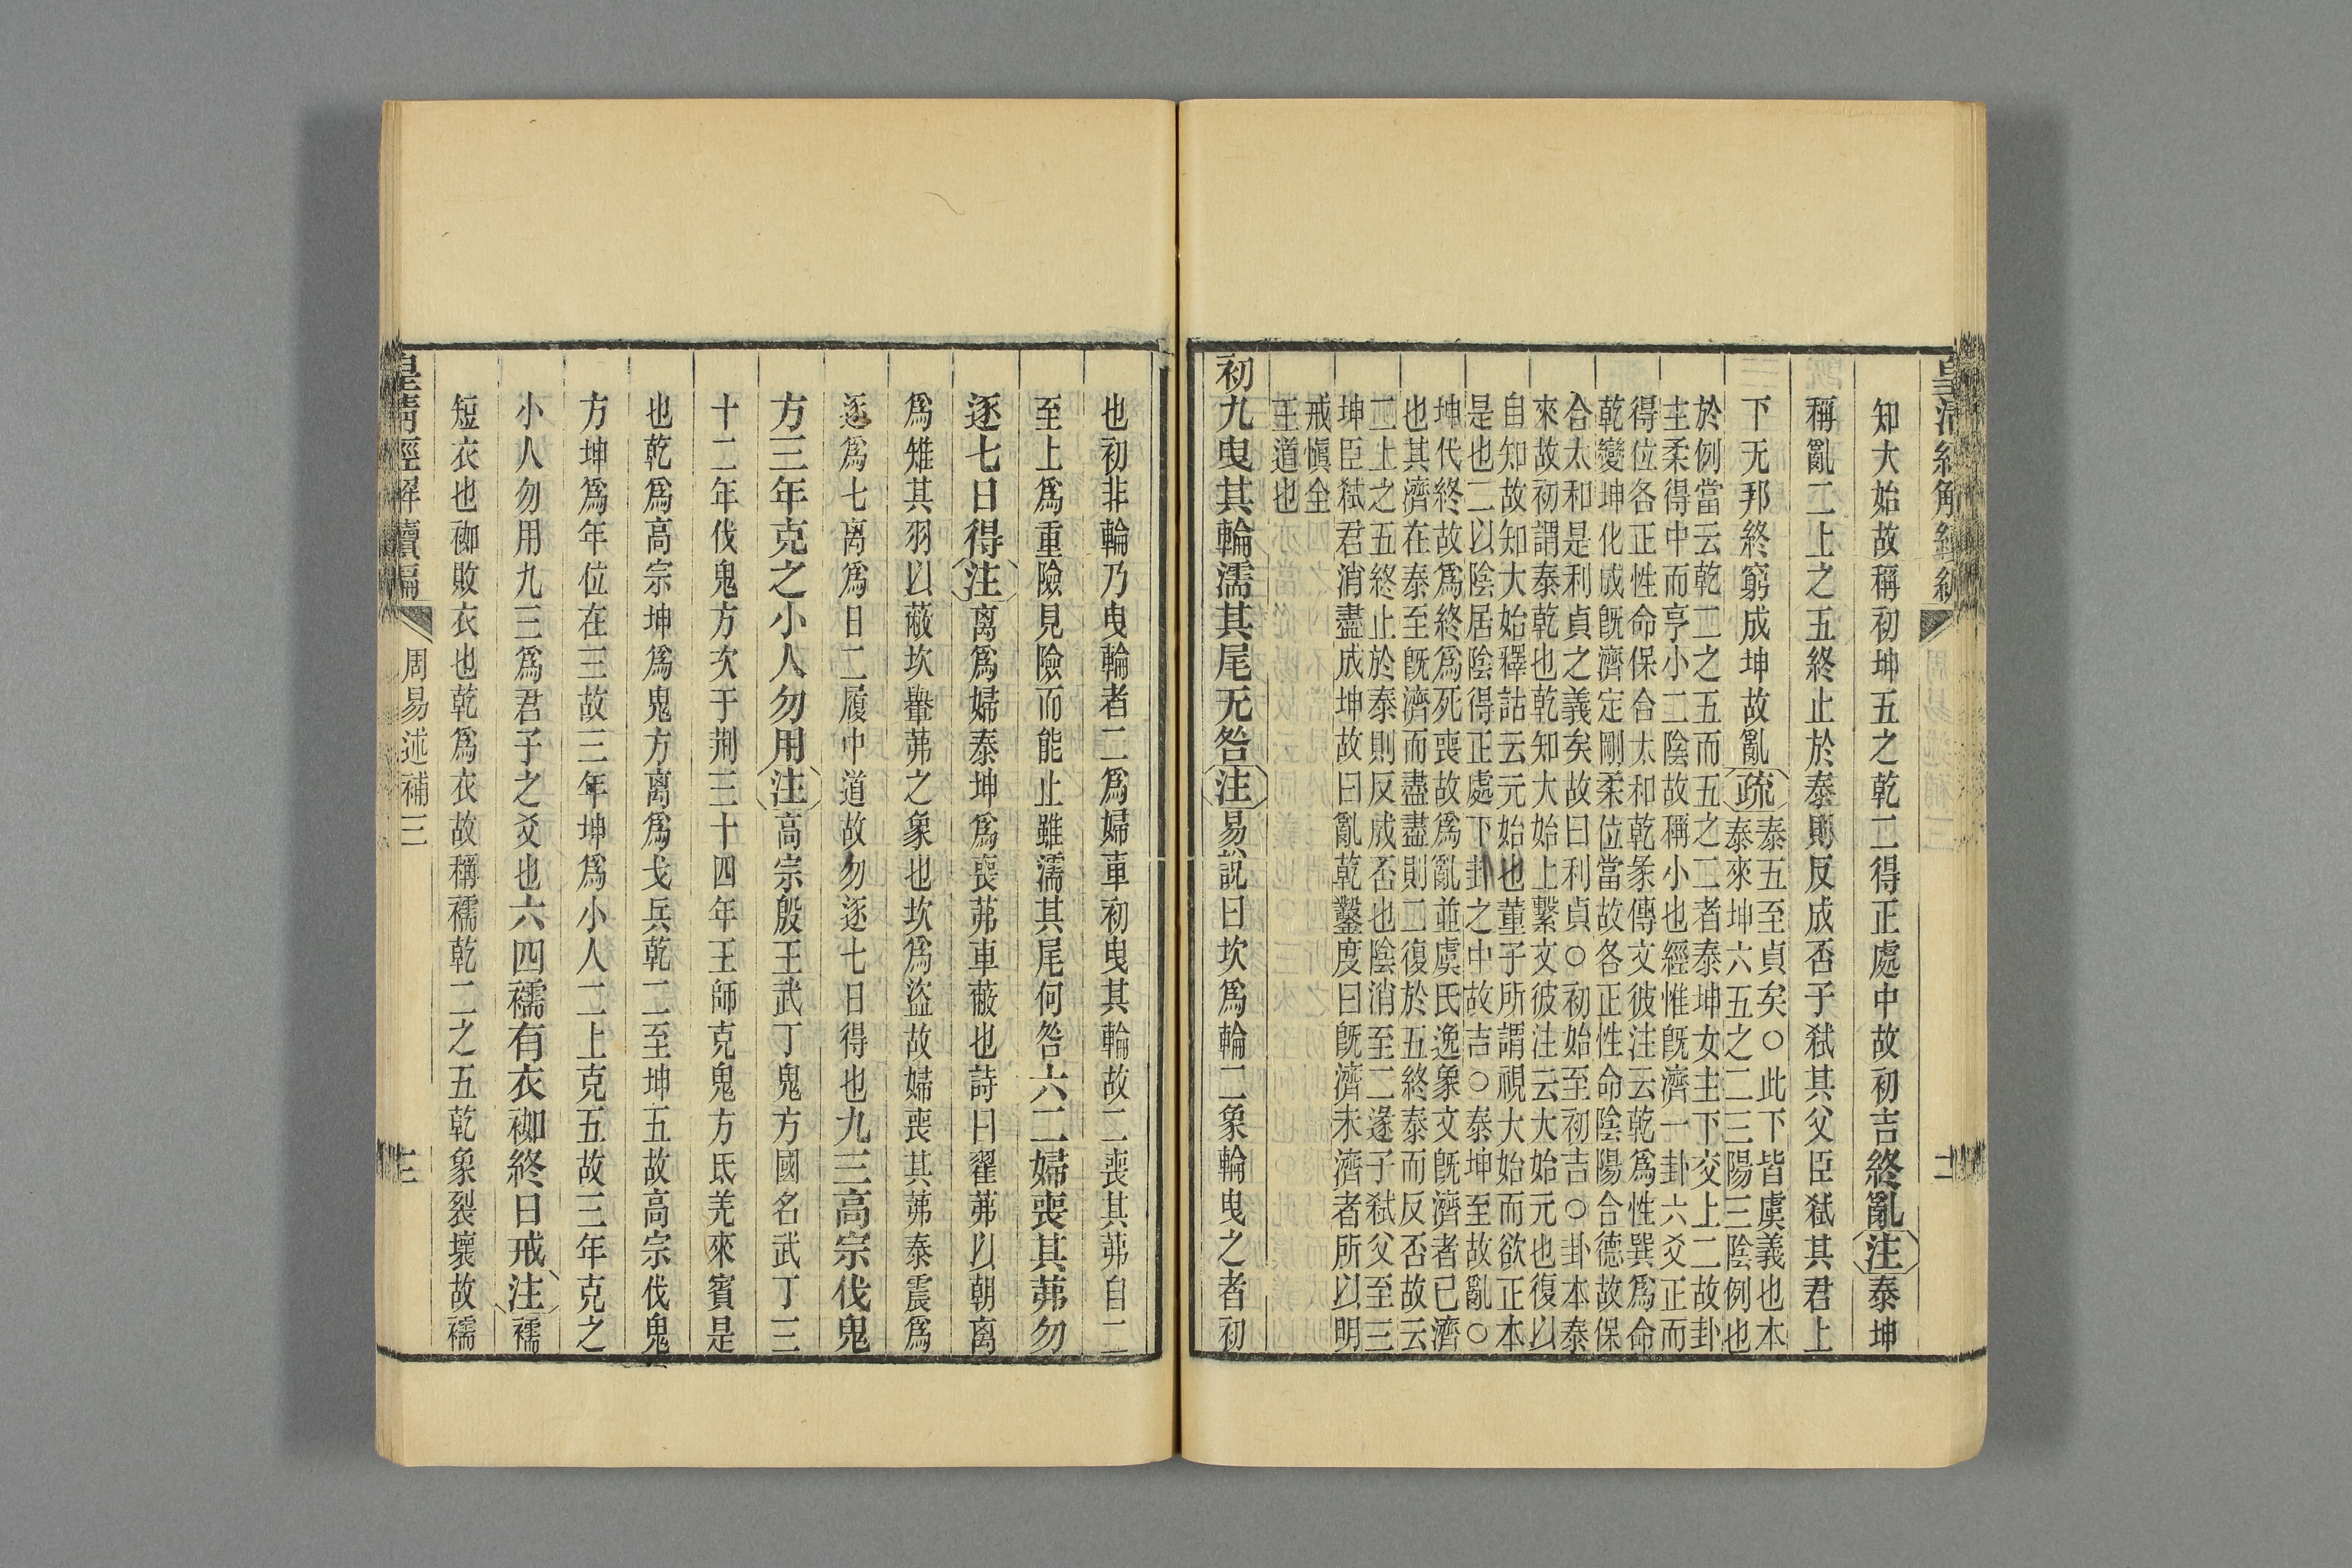 皇清經解續編 周易述補三 二
知大始故稱初坤五之乾二得正處中故初吉終亂注泰坤
稱亂二上之五終止於泰則反成否子弒其父臣弒其君上
下无邦終窮成坤故亂疏泰五至貞矣○此下皆虞義也本
泰來坤六五之二三陽三陰例也
於例當云乾二之五而五之二者泰坤女主下交上二故卦
主柔得中而亨小二陰故稱小也經惟旣濟一卦六爻正而
得位各正性命保合太和乾彖傳文彼注云乾爲性巽爲命
乾變坤化成旣濟定剛柔位當故各正性命陰陽合德故保
合太和是利貞之義矣故曰利貞○初始至初吉○卦本泰
來故初謂泰乾也乾知大始上繫文彼注云大始元也復以
自知故知大始釋詁云元始也董子所謂視大始而欲正本
是也二以陰居陰得正處下卦之中故吉○泰坤至故亂○
坤代終故爲終爲死喪故爲亂並虞氏逸象文旣濟者已濟
也其濟在泰至旣濟而盡盡則二復於五終泰而反否故云
二上之五終止於泰則反成否也陰消至二遂子弒父至三
坤臣弒君消盡成坤故曰亂乾鑿度曰旣濟未濟者所以明
戒愼全
王道也
初九曳其輪濡其尾无咎注易說曰坎爲輪二象輪曳之者初
也初非輪乃曳輪者二爲婦車初曳其輪故二喪其茀自二
至上爲重險見險而能止雖濡其尾何咎六二婦喪其茀勿
逐七日得注离爲婦泰坤爲喪茀車蔽也詩曰翟茀以朝离
爲雉其羽以蔽坎轝茀之象也坎爲盜故婦喪其茀泰震爲
逐爲七离爲日二履中道故勿逐七日得也九三高宗伐鬼
方三年克之小人勿用注高宗殷王武丁鬼方國名武丁三
十二年伐鬼方次于荆三十四年王師克鬼方氐羌來賓是
也乾爲高宗坤爲鬼方离爲戈兵乾二至坤五故高宗伐鬼
方坤爲年位在三故三年坤爲小人二上克五故三年克之
小人勿用九三爲君子之爻也六四襦有衣袽終日戒注襦
短衣也袽敗衣也乾爲衣故稱襦乾二之五乾象裂壞故襦
皇清經解續編 周易述補三 三